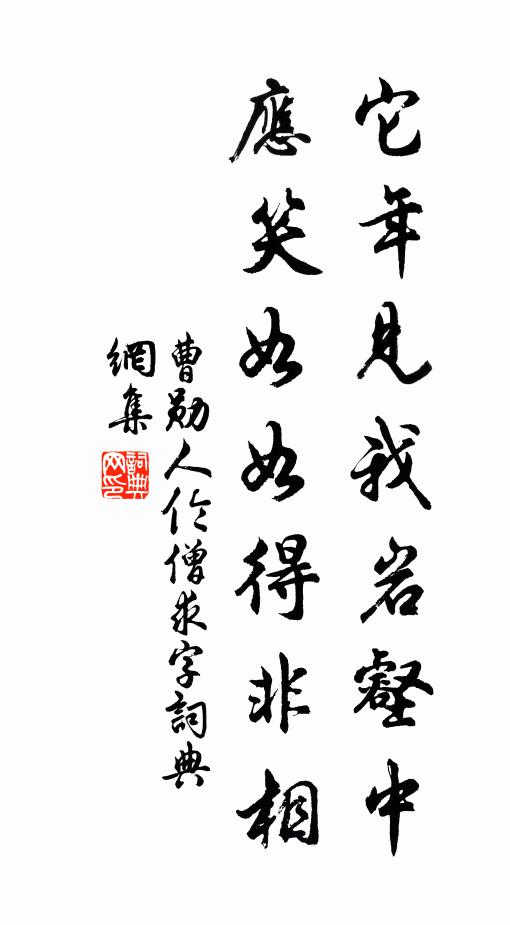 它年見我岩壑中
應笑如如得非相
曹勛人伶僧求字詞典
網集
詞典網印